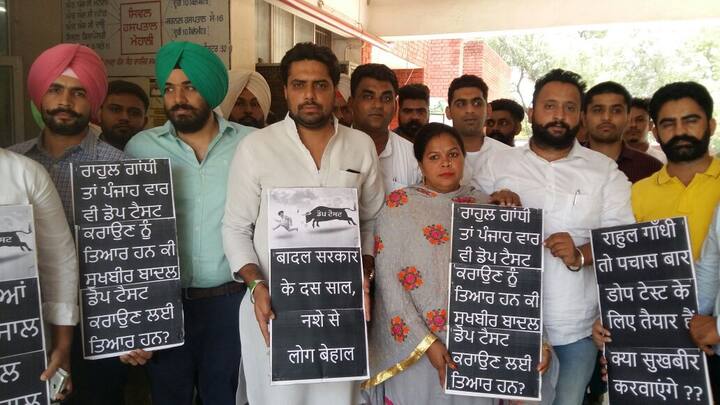 ਸਿਵਲ
ਹਸਪਤਾਲ
ਮੋਹਾਲੀ
ਟੈਸਟ
ਰਾਹੁਲ ਗਾਂਧੀ
ਤਾਂ ਪੰਜਾਹ ਵਾਰ
ਵੀ ਡੋਪ ਟੈਸਟ
ਕਰਾਉਣ ਨੂੰ
ਤਿਆਰ ਹਨ ਕੀ
ਸੁਖਬੀਰ ਬਾਦਲ
ਡੋਪ ਟੈਸਟ
ਕਰਾਉਣ ਲਈ
ਤਿਆਰ ਹਨ?
ਡੋਪ ਟੈਸਟ
बादल सरकार
के दस साल,
नशे से
लोग बेहाल
ਰਾਹੁਲ ਗਾਂਧੀ
ਤਾਂ ਪੰਜਾਹ ਵਾਰ
ਵੀ ਡੋਪ ਟੈਸਟ
ਕਰਾਉਣ ਨੂੰ
ਤਿਆਰ ਹਨ ਕੀ
ਸੁਖਬੀਰ ਬਾਦਲ
ਡੋਪ ਟੈਸਟ
ਕਰਾਉਣ ਲਈ
ਤਿਆਰ ਹਨ?
राहुल गाँधी
तो पचास बार
डोप टेस्ट के
लिए तैयार हैं
क्या सुखबीर
करवाएंगे ??